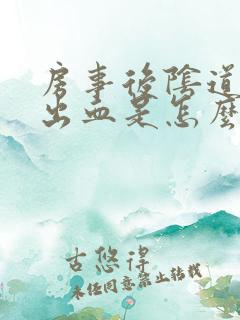 房事後陰道
出血是怎麼
古悠得
未经同意禁止转载